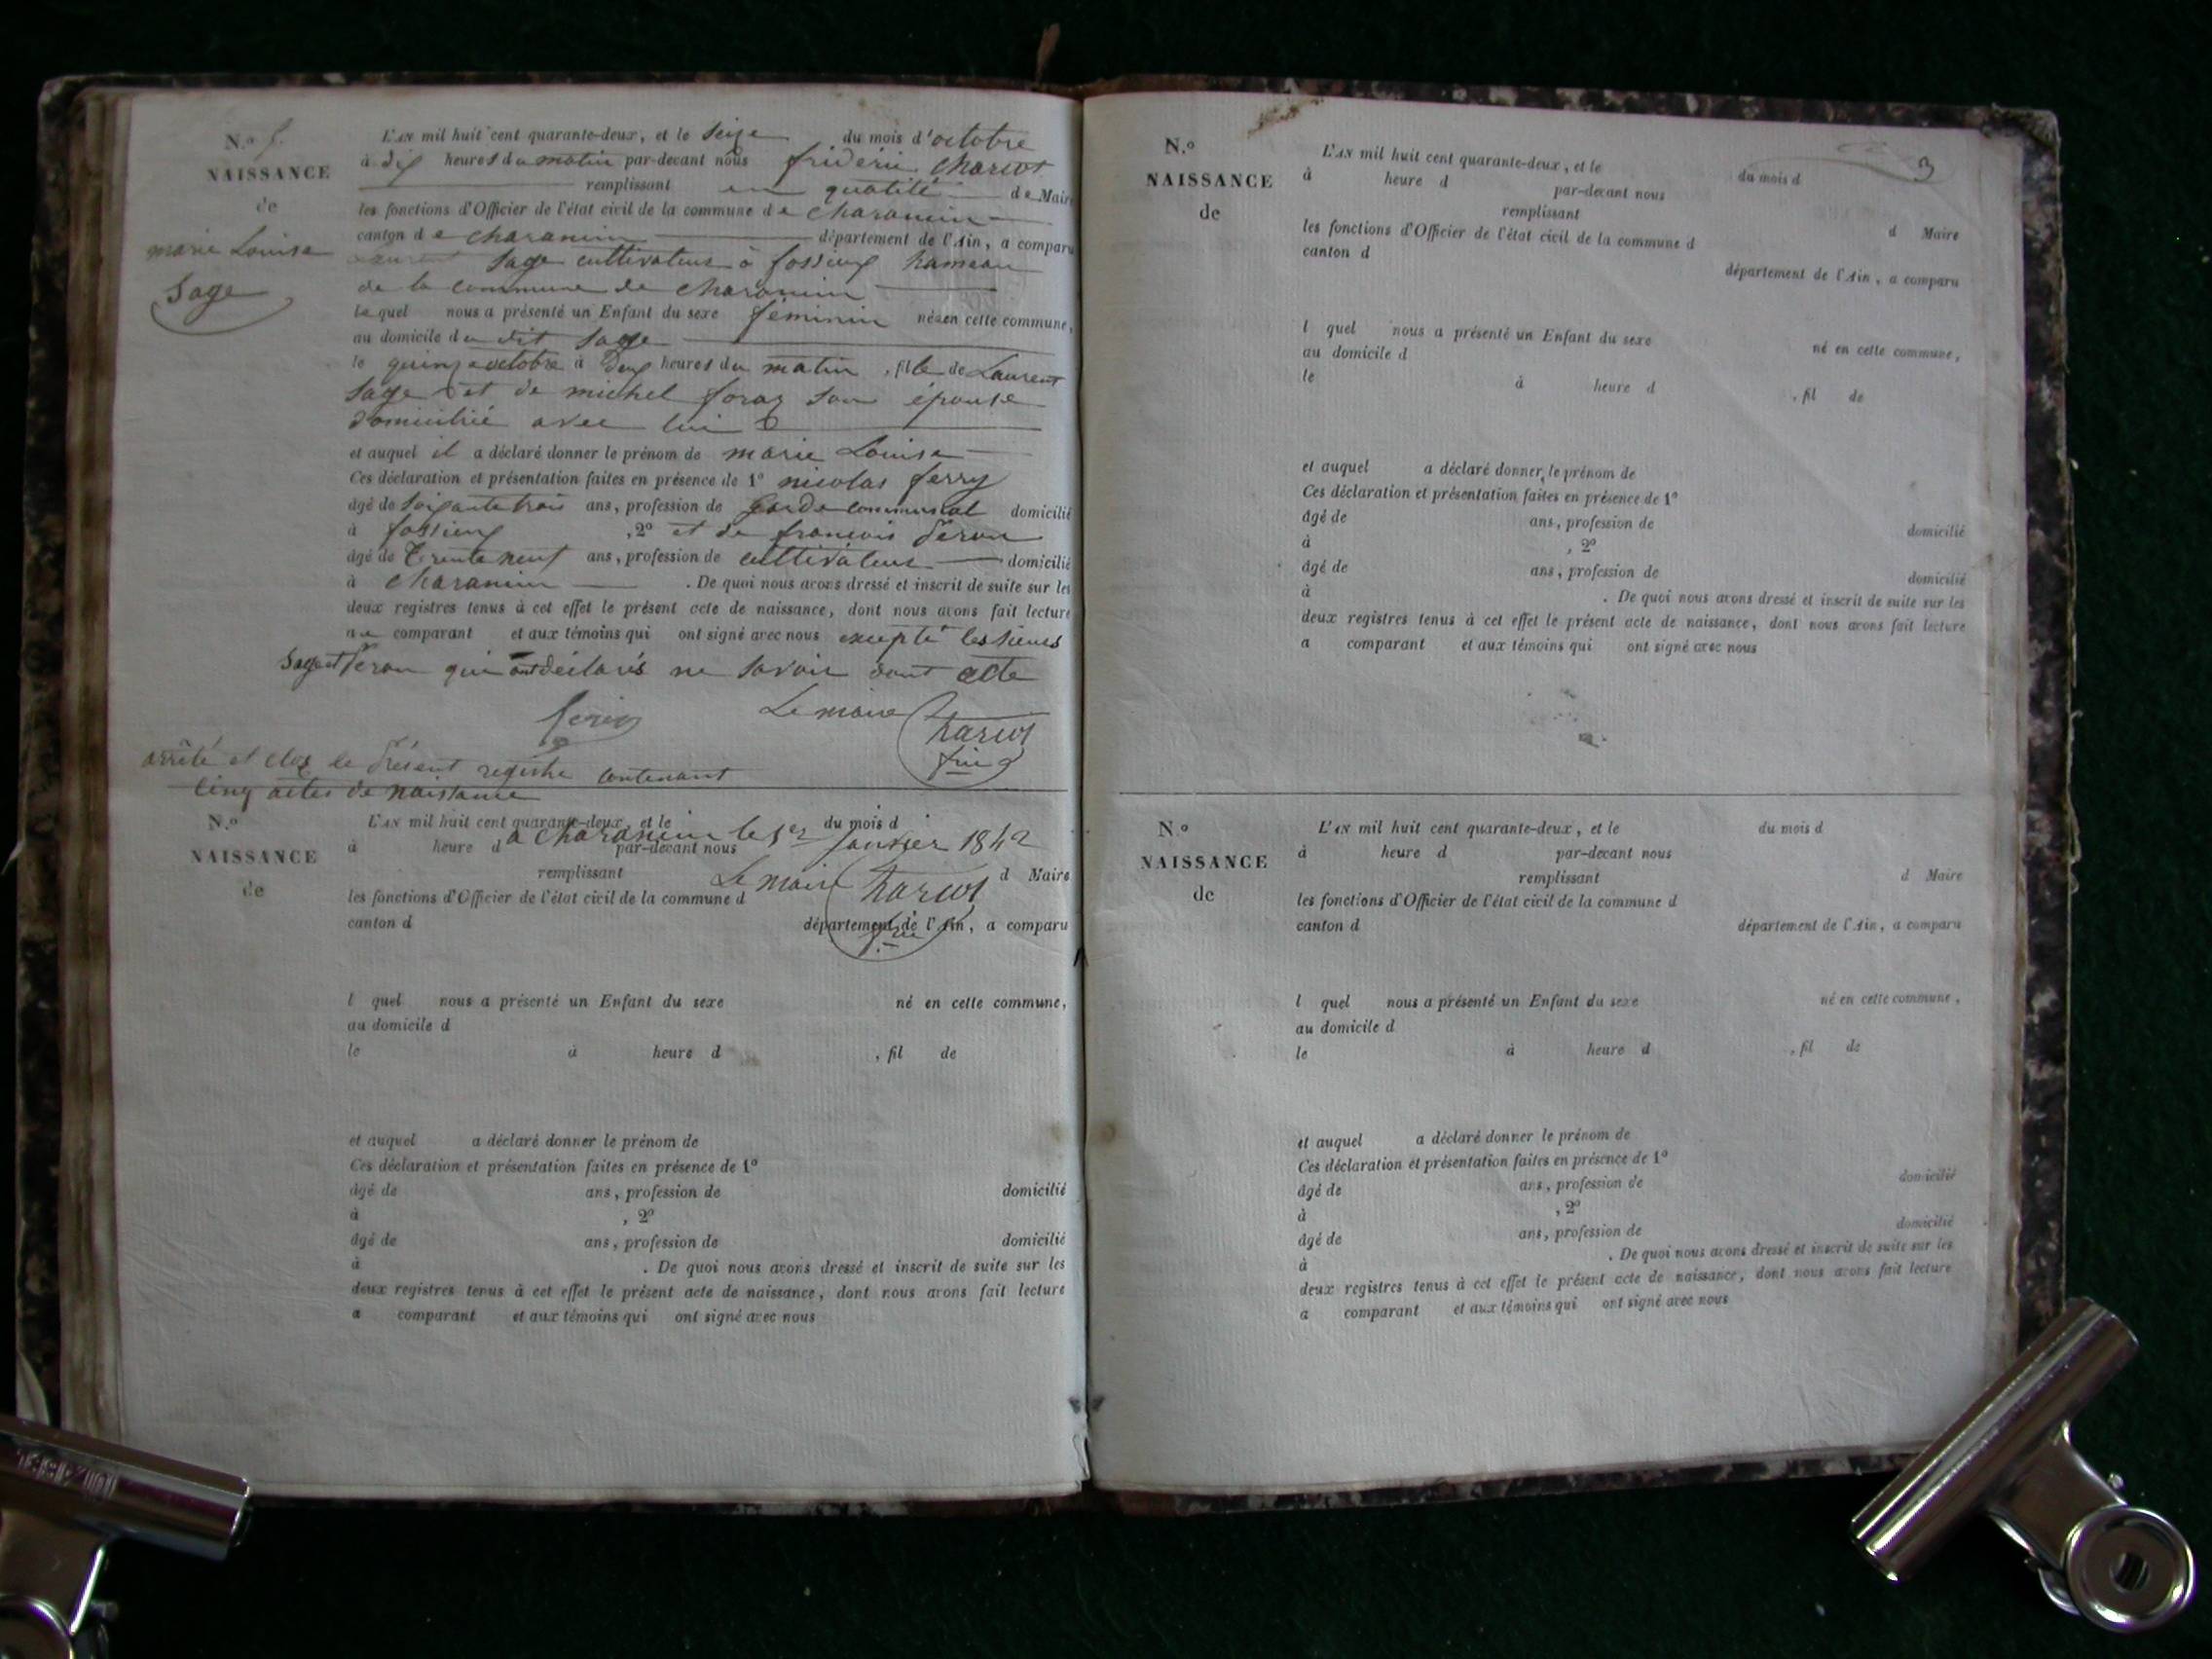 N.º 5.
NAISSANCE
de
marie Louise
Sage
L'AN mil huit cent quarante-deux, et le seize du mois d'octobre
à dix heures du matin par-devant nous fréderic
remplissant en qualité de Maire
les fonctions d'Officier de l'état civil de la commune de Charancin
canton de Charancin département de l'Ain, a comparu
Laurent Sage cultivateur à fossieux hameau
de la commune de Charancin
lequel nous a présenté un Enfant du sexe féminin né en cette commune,
au domicile du dit Sage
le quinze octobre à deux heures du matin, fille de Laurent
Sage et de michel foraz son épouse
domicilié avec lui
et auquel il a déclaré donner le prénom de marie Louise
Ces déclaration et présentation faites en présence de 1º nicolas ferry
âgé de soixante trois ans, profession de Garde communal domicilié
à fossieux, 2º et de francois
âgé de trente neuf ans, profession de cultivateur domicilié
à Charancin. De quoi nous avons dressé et inscrit de suite sur les
deux registres tenus à cet effet le présent acte de naissance, dont nous avons fait lecture
au comparant et aux témoins qui ont signé avec nous excepté les sieurs
Sage et qui ont déclarés ne savoir dont acte
Le maire
arrêté et clos le présent registre contenant
cinq actes de naissance
a Charancin le 1er janvier 1842
Le maire
N.º
NAISSANCE
de
L'AN mil huit cent quarante-deux, et le du mois d
à heure d par-devant nous
remplissant d Maire
les fonctions d'Officier de l'état civil de la commune d
canton d département de l'Ain, a comparu
l quel nous a présenté un Enfant du sexe né en cette commune,
au domicile d
le à heure d , fil de
et auquel a déclaré donner le prénom de
Ces déclaration et présentation faites en présence de 1º
âgé de ans, profession de domicilié
à , 2º
âgé de ans, profession de domicilié
à . De quoi nous avons dressé et inscrit de suite sur les
deux registres tenus à cet effet le présent acte de naissance, dont nous avons fait lecture
a comparant et aux témoins qui ont signé avec nous
3
N.º
NAISSANCE
de
L'AN mil huit cent quarante-deux, et le du mois d
à heure d par-devant nous
remplissant d Maire
les fonctions d'Officier de l'état civil de la commune d
canton d département de l'Ain, a comparu
l quel nous a présenté un Enfant du sexe né en cette commune,
au domicile d
le à heure d , fil de
et auquel a déclaré donner le prénom de
Ces déclaration et présentation faites en présence de 1º
âgé de ans, profession de domicilié
à , 2º
âgé de ans, profession de domicilié
à . De quoi nous avons dressé et inscrit de suite sur les
deux registres tenus à cet effet le présent acte de naissance, dont nous avons fait lecture
a comparant et aux témoins qui ont signé avec nous
N.º
NAISSANCE
de
L'AN mil huit cent quarante-deux, et le du mois d
à heure d par-devant nous
remplissant d Maire
les fonctions d'Officier de l'état civil de la commune d
canton d département de l'Ain, a comparu
l quel nous a présenté un Enfant du sexe né en cette commune,
au domicile d
le à heure d , fil de
et auquel a déclaré donner le prénom de
Ces déclaration et présentation faites en présence de 1º
âgé de ans, profession de domicilié
à , 2º
âgé de ans, profession de domicilié
à . De quoi nous avons dressé et inscrit de suite sur les
deux registres tenus à cet effet le présent acte de naissance, dont nous avons fait lecture
a comparant et aux témoins qui ont signé avec nous